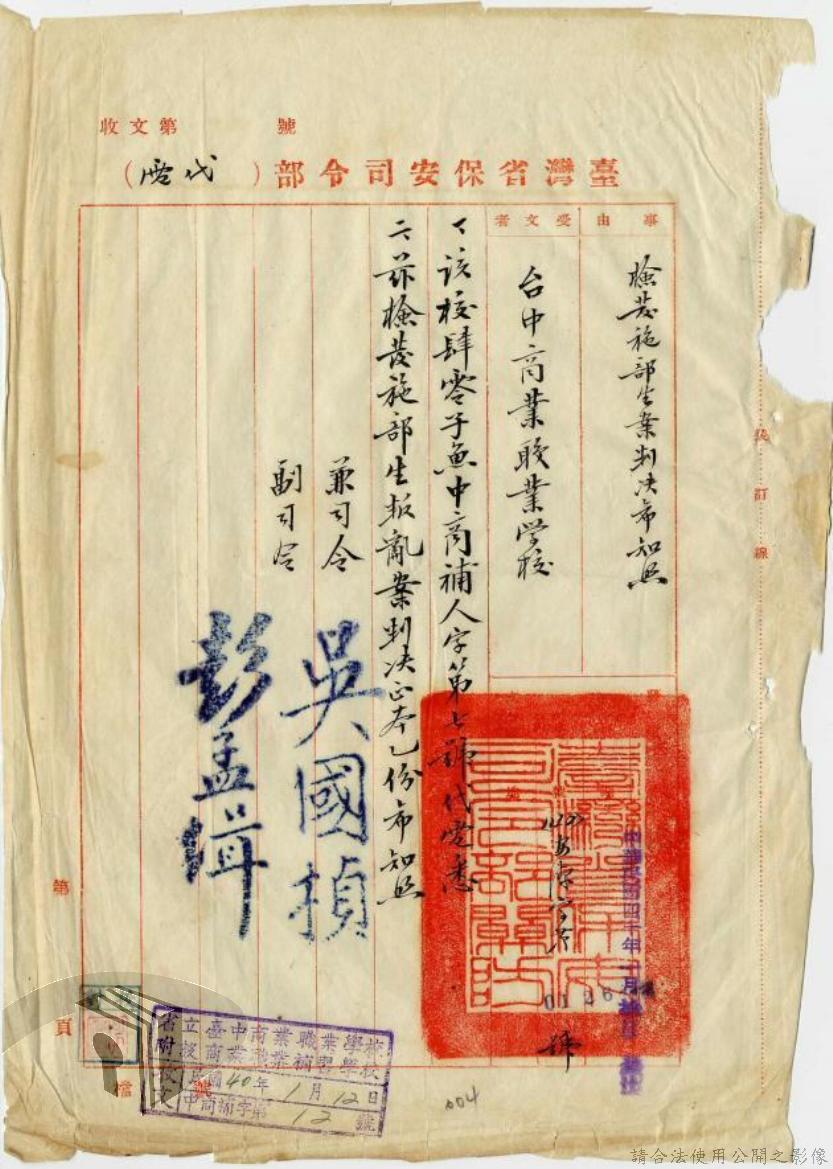 收文第　　　號
臺灣省保安司令部（代電）
事由
檢發施部生案判決希知照
受文者
台中商業職業学校
一、該校肆零子魚中商補人字第七號代電悉
二、茲檢發施部生叛亂案判決正本乙份希知照
兼司令
吳國楨
副司令
彭孟緝
臺灣省保安司令部關防
中華民國四十年一月
0126
號
裝訂線
第
頁
省立臺中商業職業學校
附設商業職業補習學校
收文
民國40年1月12日
中商補字第12號
檔號
004
請合法使用公開之影像